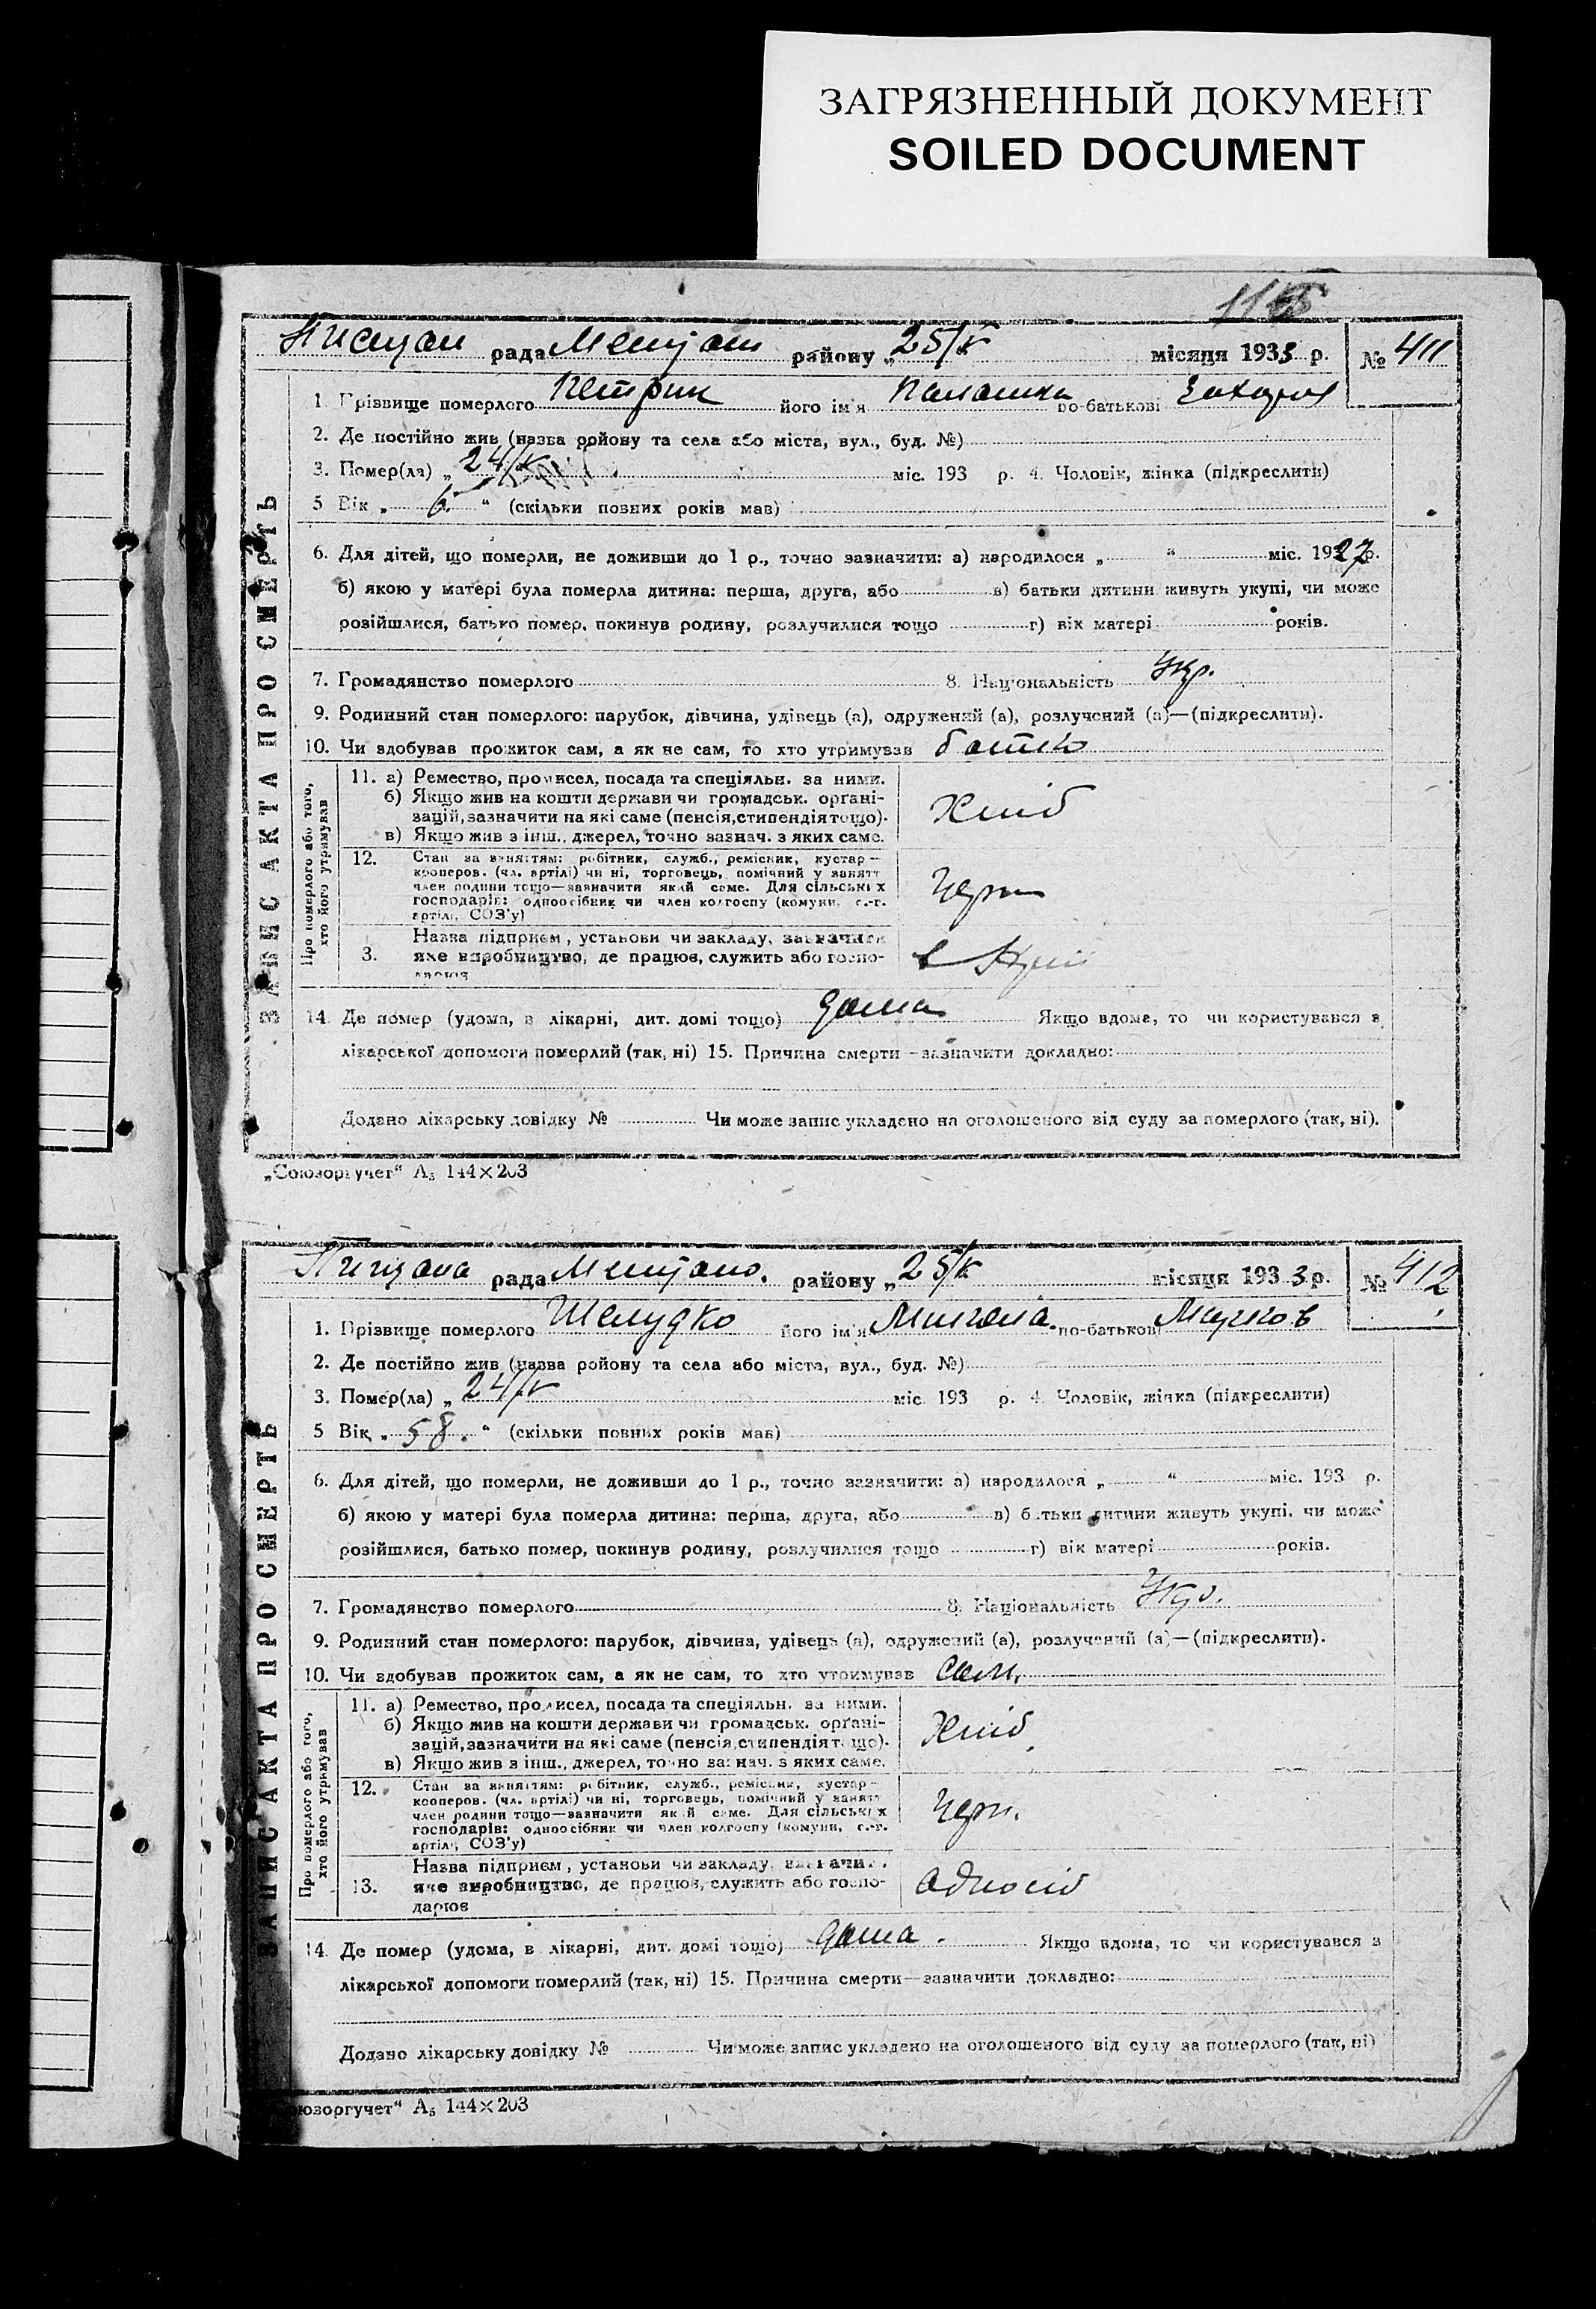 ЗАГРЯЗНЕННЫЙ ДОКУМЕНТ
SOILED DOCUMENT
ЗАПИС АКТА ПРО СМЕРТЬ
рада району „25/ місяця 1933 р. № 411
1. Прізвище померлого Петрик його ім'я Палашка по-батькові
2. Де постійно жив (назва району та села або міста, вул., буд. №)
3. Помер(ла) „ 24/ міс. 193 р. 4. Чоловік, жінка (підкреслити)
5 Вік „ 6. “ (скільки повних років мав)
6. Для дітей, що померли, не доживши до 1 р., точно зазначити: а) народилося „ “ міс. 1927 р.
б) якою у матері була померла дитина: перша, друга, або в) батьки дитини живуть укупі, чи може
розійшлися, батько помер, покинув родину, розлучилися тощо г) вік матері років.
7. Громадянство померлого 8. Національність Укр.
9. Родинний стан померлого: парубок, дівчина, удівець (а), одружений (а), розлучений (а)—(підкреслити).
10. Чи здобував прожиток сам, а як не сам, то хто утримував батько
Про померлого або того, хто його утримував
11. а) Ремество, промисел, посада та спеціяльн. за ними.
б) Якщо жив на кошти держави чи громадськ. органі-
зацій, зазначити на які саме (пенсія, стипендія тощо).
в) Якщо жив з інш., джерел, точно зазнач. з яких саме.
Хліб
12. Стан за заняттям: робітник, служб., ремісник, кустар—
кооперов. (чл. артілі) чи ні, торговець, помічний у занятт
член родини тощо—зазначити який саме. Для сільських
господарів: одноосібник чи член колгоспу (комуни, с.-г.
артілі, СОЗ'у)
3. Назва підприєм, установи чи закладу, зазначити
яке виробництво, де працює, служить або госпо-
дарює
14. Де помер (удома, в лікарні, дит. домі тощо) дома Якщо вдома, то чи користувався з
лікарської допомоги померлий (так, ні) 15. Причина смерти—зазначити докладно:
Додано лікарську довідку № Чи може запис укладено на оголошеного від суду за померлого (так, ні).
„Союзоргучет“ А₅ 144×203
ЗАПИС АКТА ПРО СМЕРТЬ
рада району „25/ місяця 1933 р. № 412
1. Прізвище померлого Шелудко його ім'я по-батькові
2. Де постійно жив (назва району та села або міста, вул., буд. №)
3. Помер(ла) „ 24/ міс. 193 р. 4. Чоловік, жінка (підкреслити)
5 Вік „ 58. “ (скільки повних років мав)
6. Для дітей, що померли, не доживши до 1 р., точно зазначити: а) народилося „ “ міс. 193 р.
б) якою у матері була померла дитина: перша, друга, або в) батьки дитини живуть укупі, чи може
розійшлися, батько помер, покинув родину, розлучилися тощо г) вік матері років.
7. Громадянство померлого 8. Національність Укр.
9. Родинний стан померлого: парубок, дівчина, удівець (а), одружений (а), розлучений (а)—(підкреслити).
10. Чи здобував прожиток сам, а як не сам, то хто утримував сам.
Про померлого або того, хто його утримував
11. а) Ремество, промисел, посада та спеціяльн. за ними.
б) Якщо жив на кошти держави чи громадськ. органі-
зацій, зазначити на які саме (пенсія, стипендія тощо).
в) Якщо жив з інш., джерел, точно зазнач. з яких саме.
Хліб
12. Стан за заняттям: робітник, служб., ремісник, кустар—
кооперов. (чл. артілі) чи ні, торговець, помічний у занятт
член родини тощо—зазначити який саме. Для сільських
господарів: одноосібник чи член колгоспу (комуни, с.-г.
артілі, СОЗ'у)
13. Назва підприєм, установи чи закладу,
яке виробництво, де працює, служить або госпо-
дарює
Односіб
14. Де помер (удома, в лікарні, дит. домі тощо) дома. Якщо вдома, то чи користувався з
лікарської допомоги померлий (так, ні) 15. Причина смерти—зазначити докладно:
Додано лікарську довідку № Чи може запис укладено на оголошеного від суду за померлого (так, ні)
юзоргучет“ А₅ 144×203